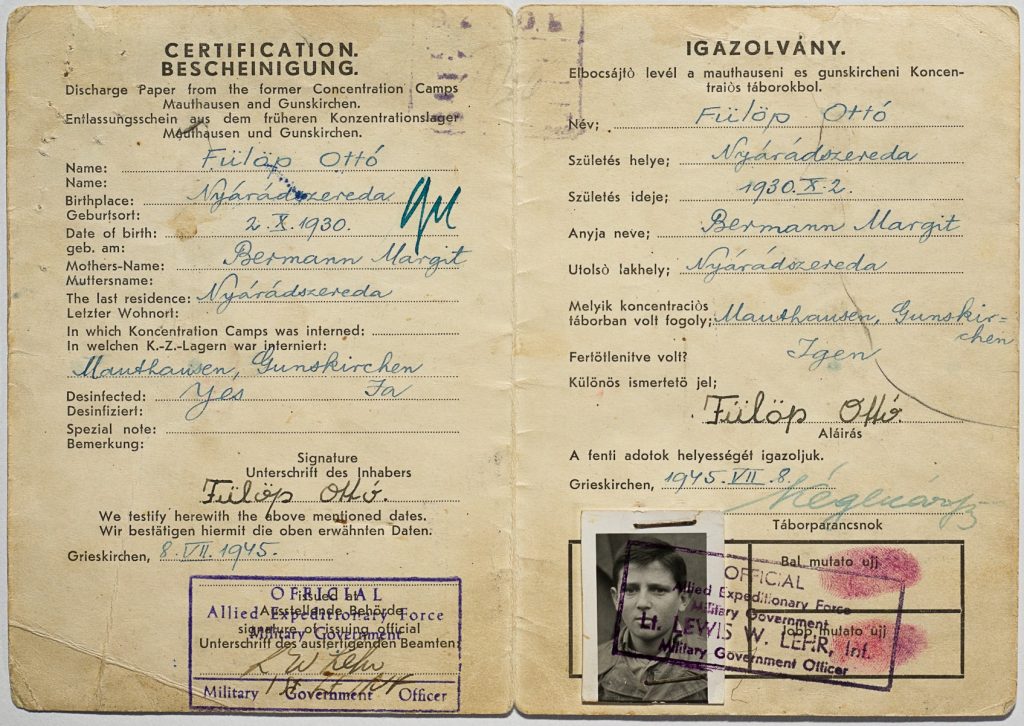 CERTIFICATION.
BESCHEINIGUNG.
Discharge Paper from the former Concentration Camps
Mauthausen and Gunskirchen.
Entlassungsschein aus dem früheren Konzentrationslager
Mauthausen und Gunskirchen.
Name: Fülöp Ottó
Name:
Birthplace: Nyárádszereda
Geburtsort:
Date of birth: 2. X. 1930.
geb. am:
Mothers-Name: Bermann Margit
Muttersname:
The last residence: Nyárádszereda
Letzter Wohnort:
In which Koncentration Camps was interned:
In welchen K.-Z.-Lagern war interniert:
Mauthausen, Gunskirchen
Desinfected: Yes Ja
Desinfiziert:
Spezial note:
Bemerkung:
Signature
Unterschrift des Inhabers
Fülöp Ottó.
We testify herewith the above mentioned dates.
Wir bestätigen hiermit die oben erwähnten Daten.
Grieskirchen, 8. VII. 1945.
OFFICIAL
issued at
Ausstellende Behörde
Allied Expeditionary Force
signature of issuing official
Military Government
Unterschrift des ausfertigenden Beamten:
L W Lehr
Military Government Officer
IGAZOLVÁNY.
Elbocsájtò levél a mauthauseni es gunskircheni Koncen-
traiòs táborokbol.
Név; Fülöp Ottó
Születés helye; Nyárádszereda
Születés ideje; 1930. X. 2.
Anyja neve; Bermann Margit
Utolsò lakhely; Nyárádszereda
Melyik koncentraciòs
táborban volt fogoly; Mauthausen, Gunskir=
chen
Fertötlenitve volt? Igen
Különös ismertetö jel;
Fülöp Ottó.
Aláirás
A fenti adotok helyességét igazoljuk.
Grieskirchen, 1945. VII. 8.
Táborparancsnok
Bal mutato ujj
Jobb mutato ujj
OFFICIAL
Allied Expeditionary Force
Military Government
Lt. LEWIS W. LEHR, Inf.
Military Government Officer